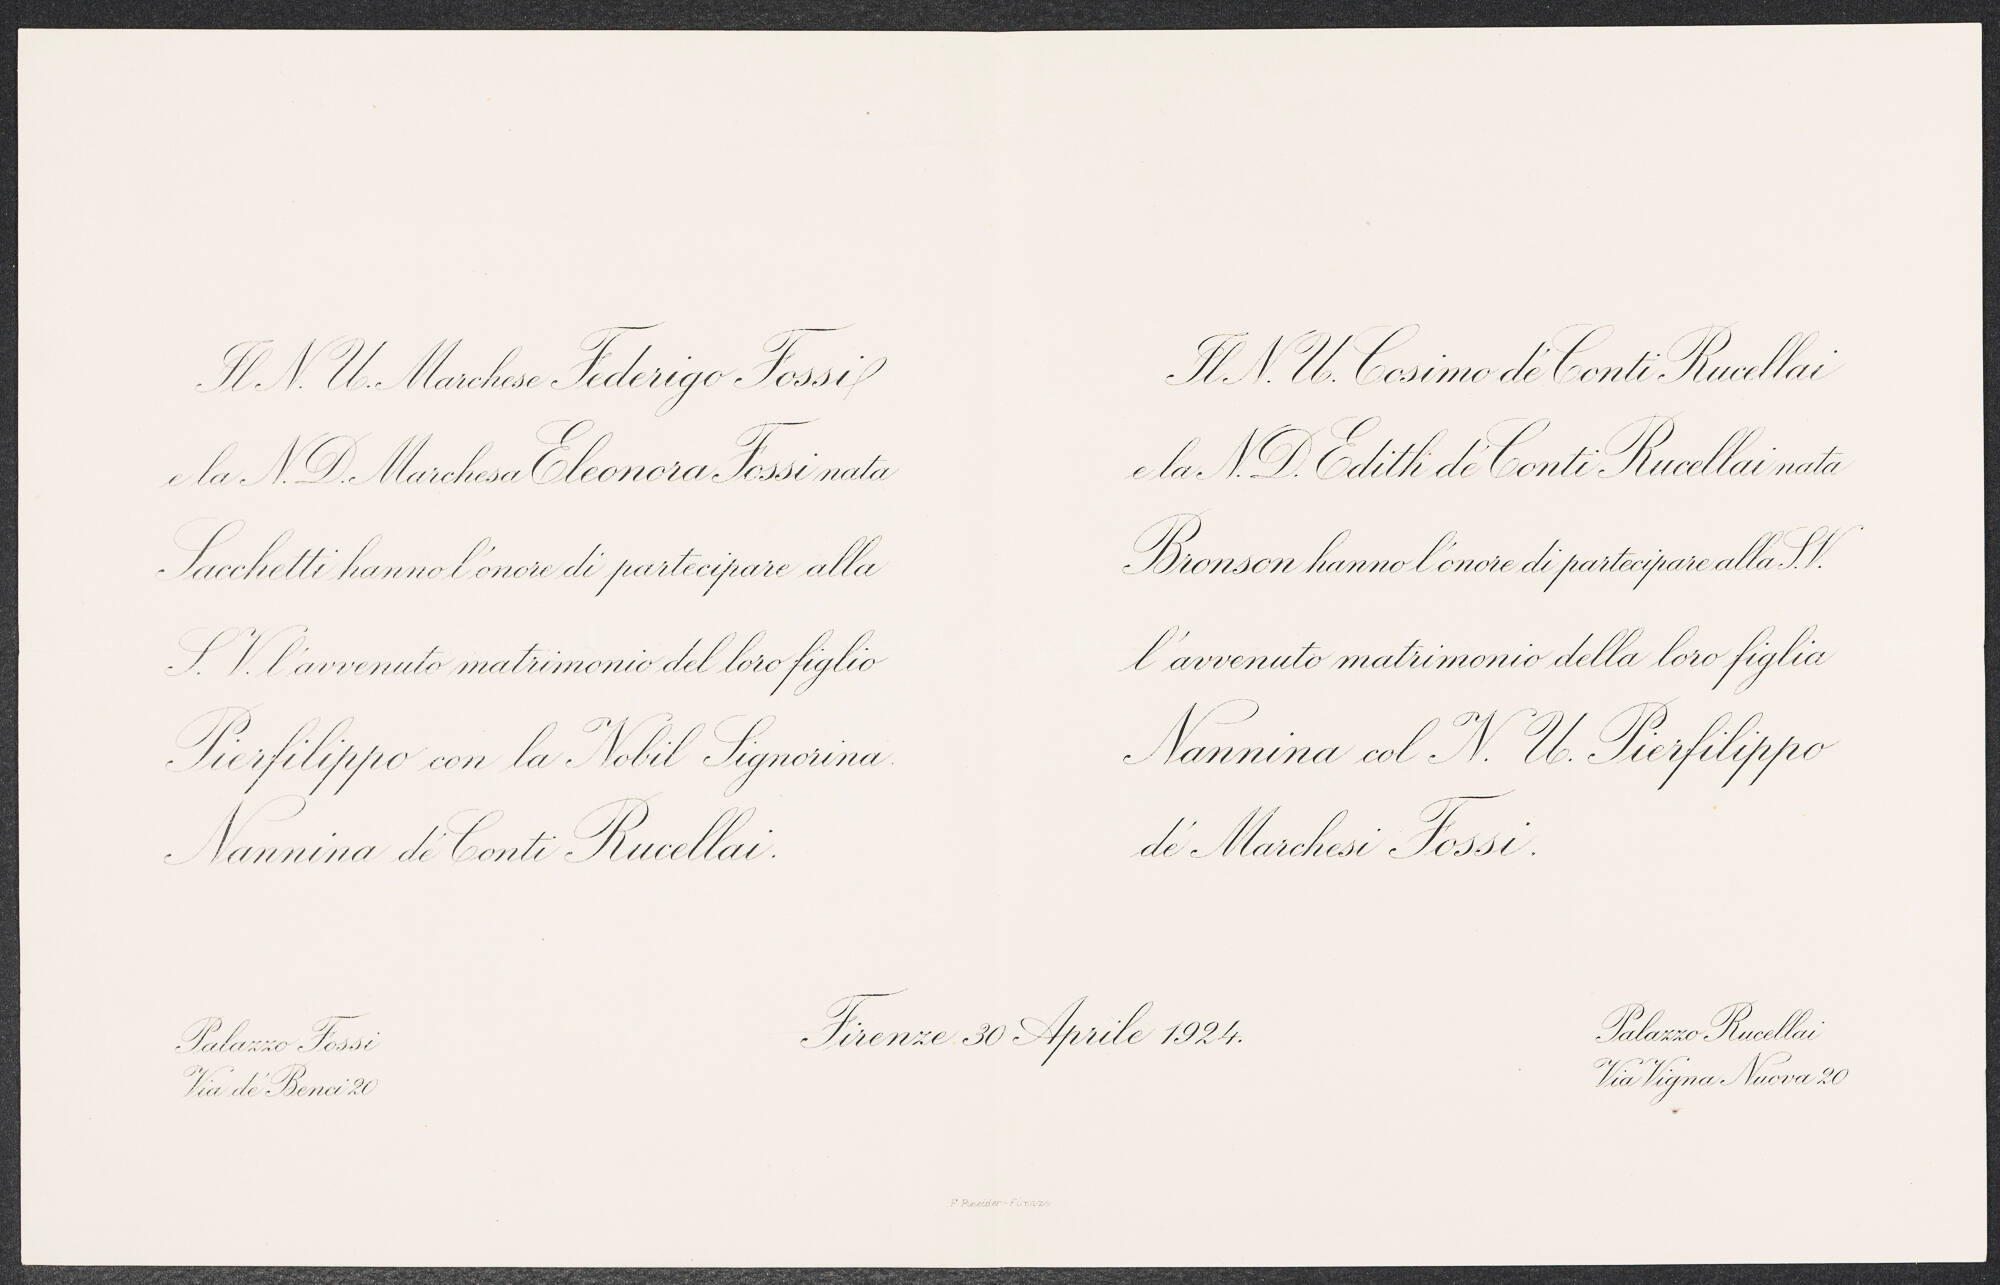 Il N. U. Marchese Federigo Fossi
e la N. D. Marchesa Eleonora Fossi nata
Sacchetti hanno l'onore di partecipare alla
S. V. l'avvenuto matrimonio del loro figlio
Pierfilippo con la Nobil Signorina
Nannina de' Conti Rucellai.
Palazzo Fossi
Via de' Benci 20
Il N. U. Cosimo de' Conti Rucellai
e la N. D. Edith de' Conti Rucellai nata
Bronson hanno l'onore di partecipare alla S. V.
l'avvenuto matrimonio della loro figlia
Nannina col N. U. Pierfilippo
de' Marchesi Fossi.
Firenze 30 Aprile 1924.
Palazzo Rucellai
Via Vigna Nuova 20
F. Pineider - Firenze